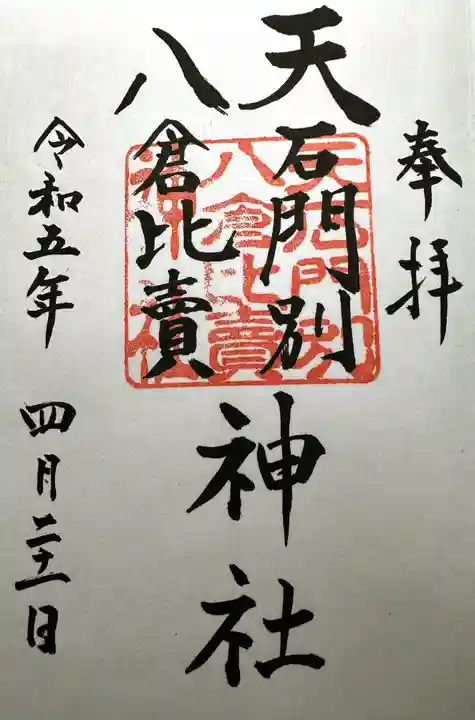 奉拝
天石門別
八倉比賣
神社
令和五年
四月二十一日
天石門別
八倉比賣
神社